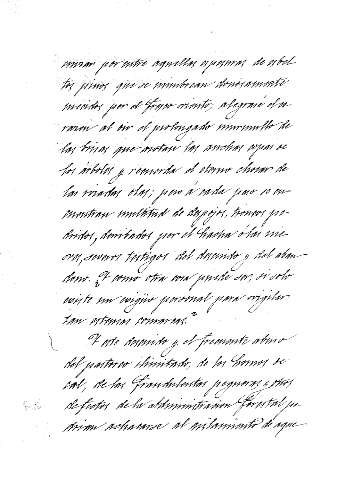 cruzar por entre aquellas espesuras de esbel-
tos pinos que se mimbrean donosamente
mecidos por el fresco oriente; alégrase el co-
razon al oir el prolongado murmullo de
las brisas que azotan las anchas copas de
los árboles y remeda el eterno chocar de
las rizadas olas; pero á cada paso se en-
cuentran multitud de despojos, troncos po-
dridos, derribados por el hacha ó las
severos testigos del descuido y del aban-
dono. ¿Y como otra cosa puede ser, si solo
existe un exiguo personal para vigilar
tan extensas comarcas?
Y este descuido y el frecuente abuso
del pastoreo ilimitado, de los hornos de
cal, de las fraudulentas pegueras y otros
defectos de la administracion forestal po-
drian achacarse al aislamiento de aque-